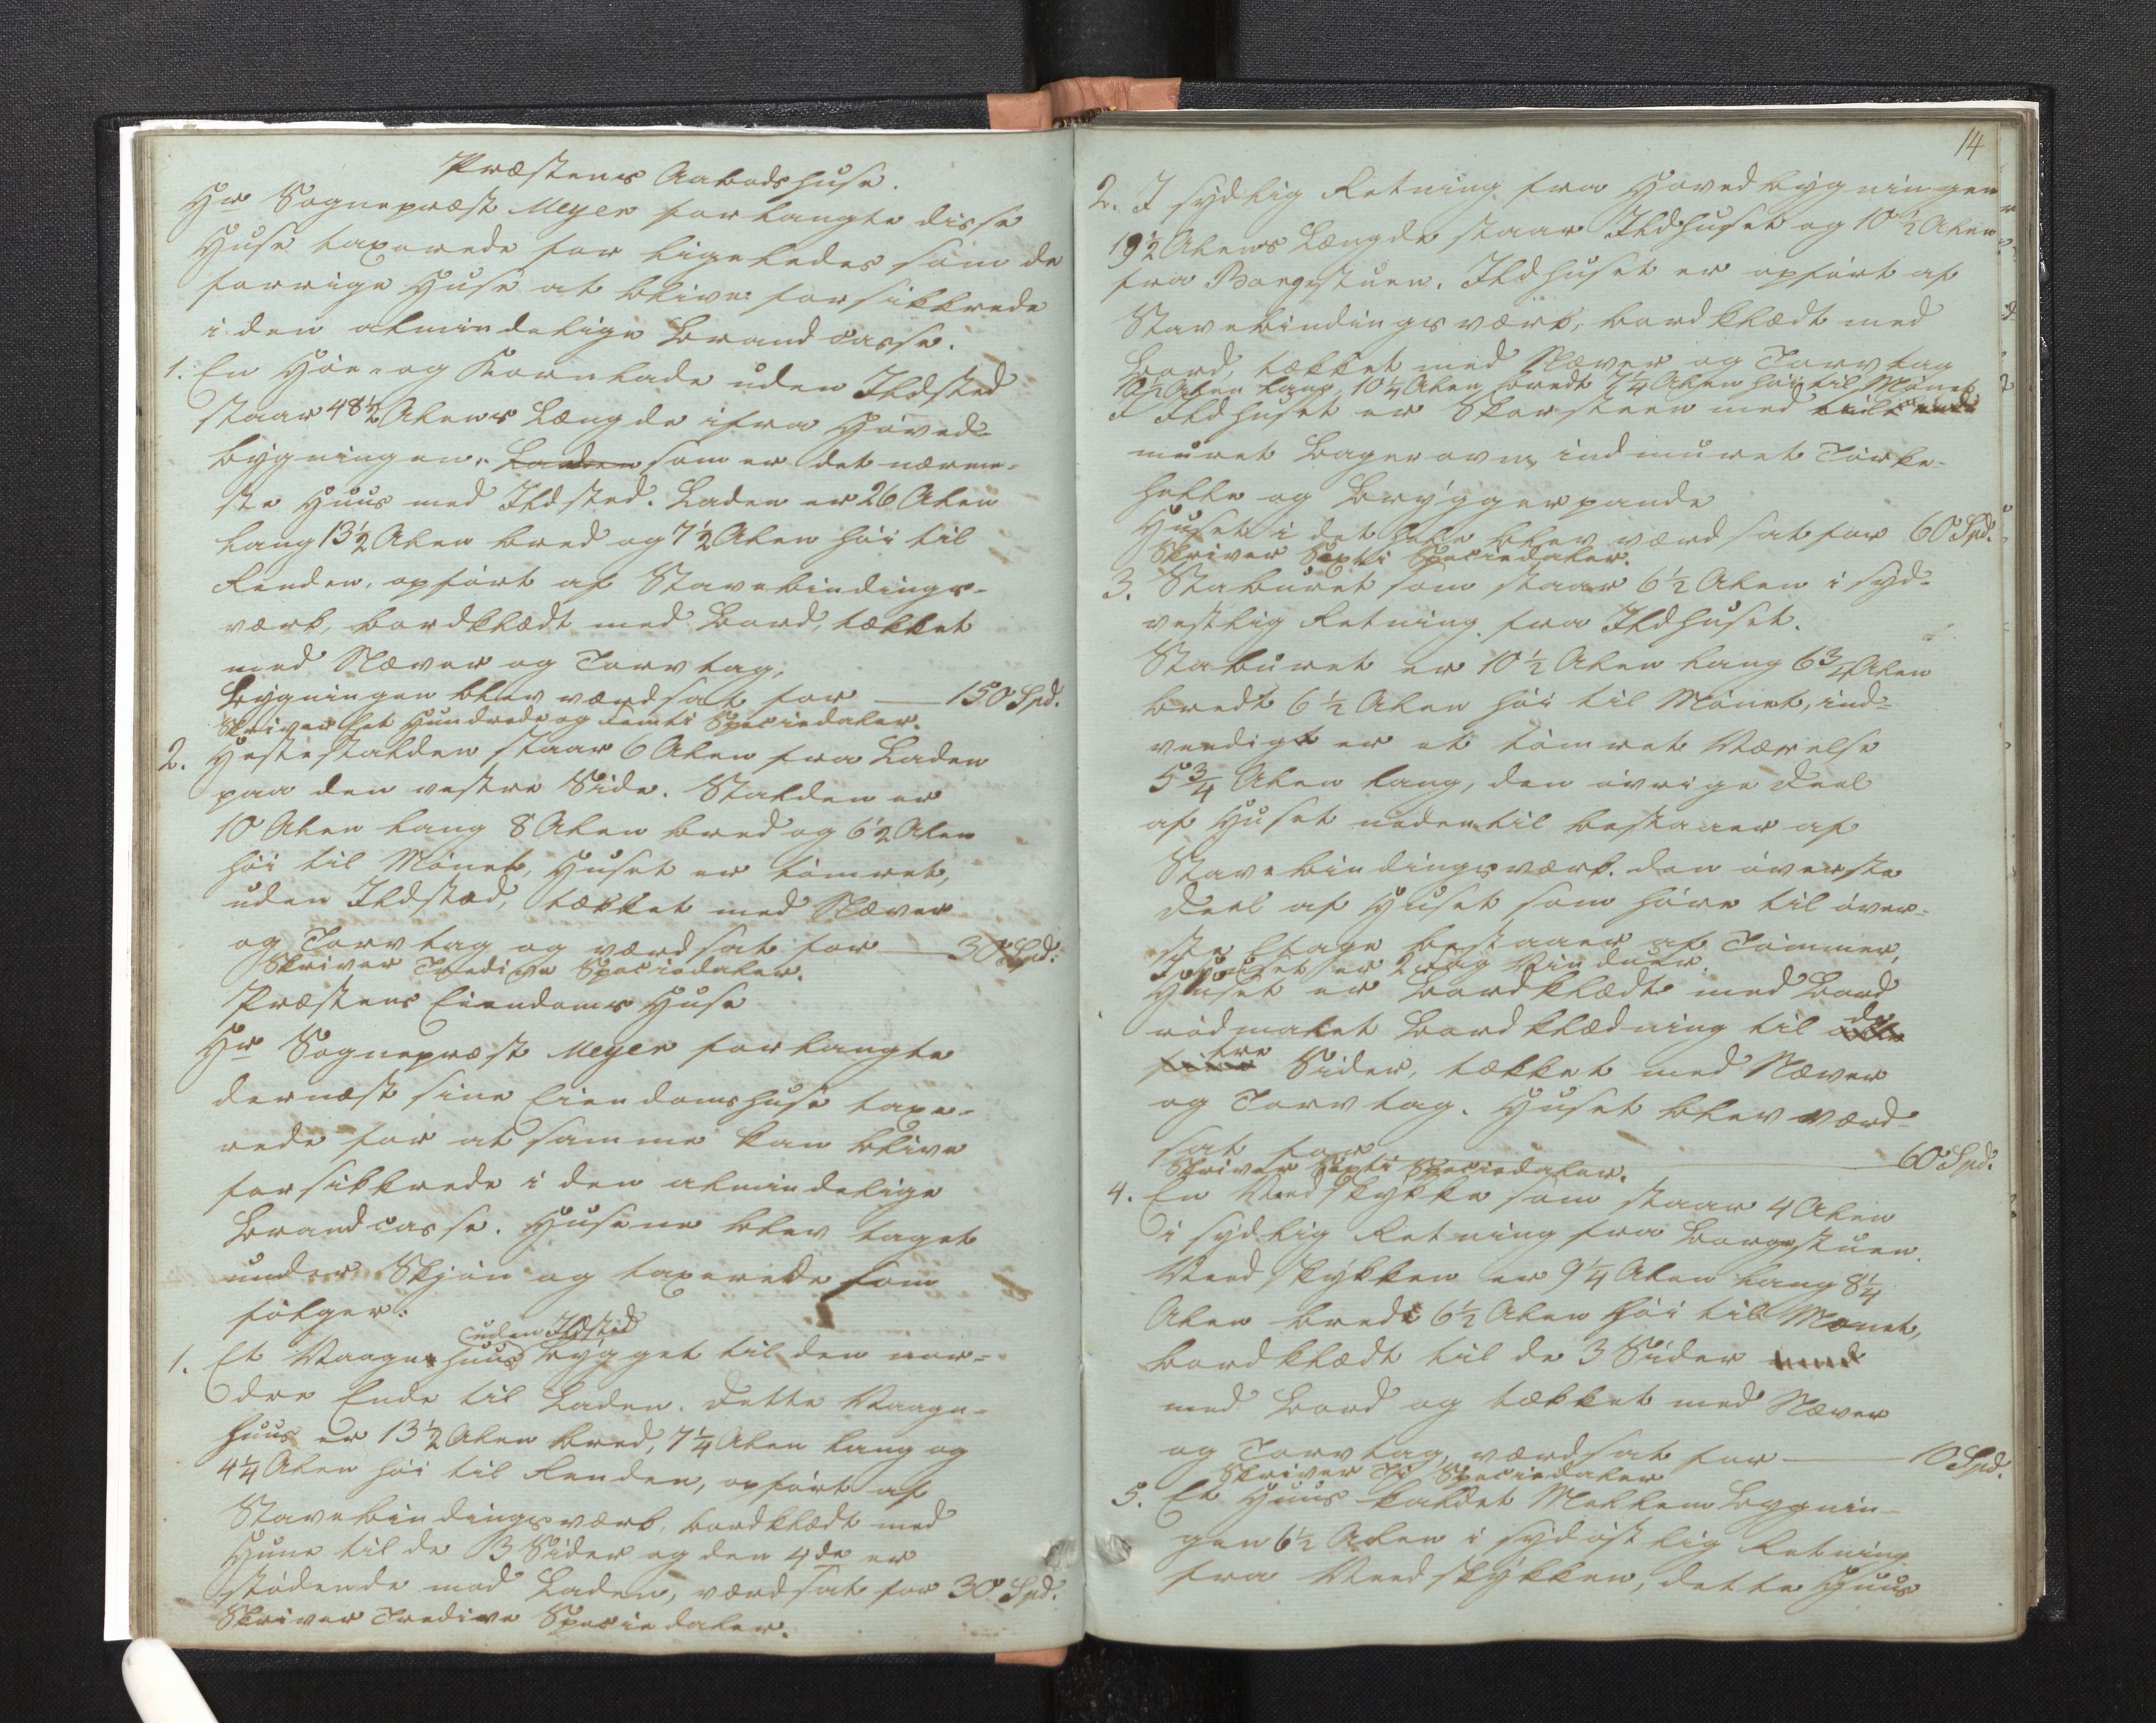 Præstens Aabodshuse.
Hr Sognepræst Meyer forlangte disse
Huse taxerede for ligeledes som de
forrige Huse at blive forsikkrede
i den almindelige Brandcasse.
1. En Høe- og Kornlade uden Ildsted
staar 48½ Alens Længde ifra Hoved-
bygningen, Laden som er det nærme-
ste Huus med Ildsted. Laden er 26 Alen
lang 13½ Alen bred og 7½ Alen høi til
Renden, opført af Stavebindings-
værk, bordklædt med Bord, tækket
med Næver og Torvtag,
Bygningen blev værdsat for — 150 Spd.
Skriver Et Hundrede og Femti Speciedaler.
2. Hestestalden staar 6 Alen fra Laden
paa den vestre Side. Stalden er
10 Alen lang 8 Alen bred og 6½ Alen
høi til Mønet, Huset er tømret,
uden Ildsted, tækket med Næver
og Torvtag og værdsat for — 30 Spd.
Skriver Tredive Speciedaler.
Præstens Eiendoms Huse
Hr Sognepræst Meyer forlangte
dernæst sine Eiendomshuse taxe-
rede for at samme kan blive
forsikkrede i den almindelige
Brandcasse. Husene blev taget
under Skjøn og taxerede som
følger:
uden Ildsted
1. Et Vaagnhuus bygget til den nor-
dre Ende til Laden. Dette Vaagn-
huus er 13½ Alen bred, 7¼ Alen lang og
4¼ Alen høi til Renden, opført af
Stavebindingsværk, bordklædt med
Hune til de 3 Sider og den 4de er
stødende mod Laden, værdsat for 30 Spd.
Skriver Tredive Speciedaler.
14
2. I sydlig Retning fra Hovedbygningen
19½ Alens Længde staar Ildhuset og 10½ Alen
fra Borgestuen. Ildhuset er opført af
Stavebindingsværk, bordklædt med
Bord, tækket med Næver og Torvtag
10½ Alen lang, 10¼ Alen bredt 7¼ Alen høi til Mønet
I Ildhuset er Skorsteen med
muret Bagerovn, indmuret Tørke-
helle og Bryggerpande
Huset i det hele blev værdsat for 60 Spd.
Skriver Sexti Speciedaler.
3. Staburet som staar 6½ Alen i syd-
vestlig Retning fra Ildhuset.
Staburet er 10½ Alen lang 6¾ Alen
bredt 6½ Alen høi til Mønet, ind-
vendigt er et tømret Værelse
5¾ Alen lang, den øvrige Deel
af Huset nedentil bestaaer af
Stavebindingsværk. den øverste
Deel af Huset som høre til øver-
ste Etage bestaaer af Tømmer,
I Huset er 2 Fag Vinduer.
Huset er bordklædt med Bord
rødmalet Bordklædning til alle de
fire tre Sider, tækket med Næver
og Torvtag. Huset blev værd-
sat for — 60 Spd.
Skriver Sexti Speciedaler.
4. En Vedskykke som staar 4 Alen
i sydlig Retning fra Borgestuen.
Vedskykken er 9¼ Alen lang 8¼
Alen bredt 6½ Alen høi til Mønet,
bordklædt til de 3 Sider
med Bord og tækket med Næver
og Torvtag, værdsat for — 10 Spd.
Skriver Ti Speciedaler
5. Et Huus kaldet Mellem Bygnin-
gen 6½ Alen i sydøstlig Retning
fra Vedskykken, dette Huus